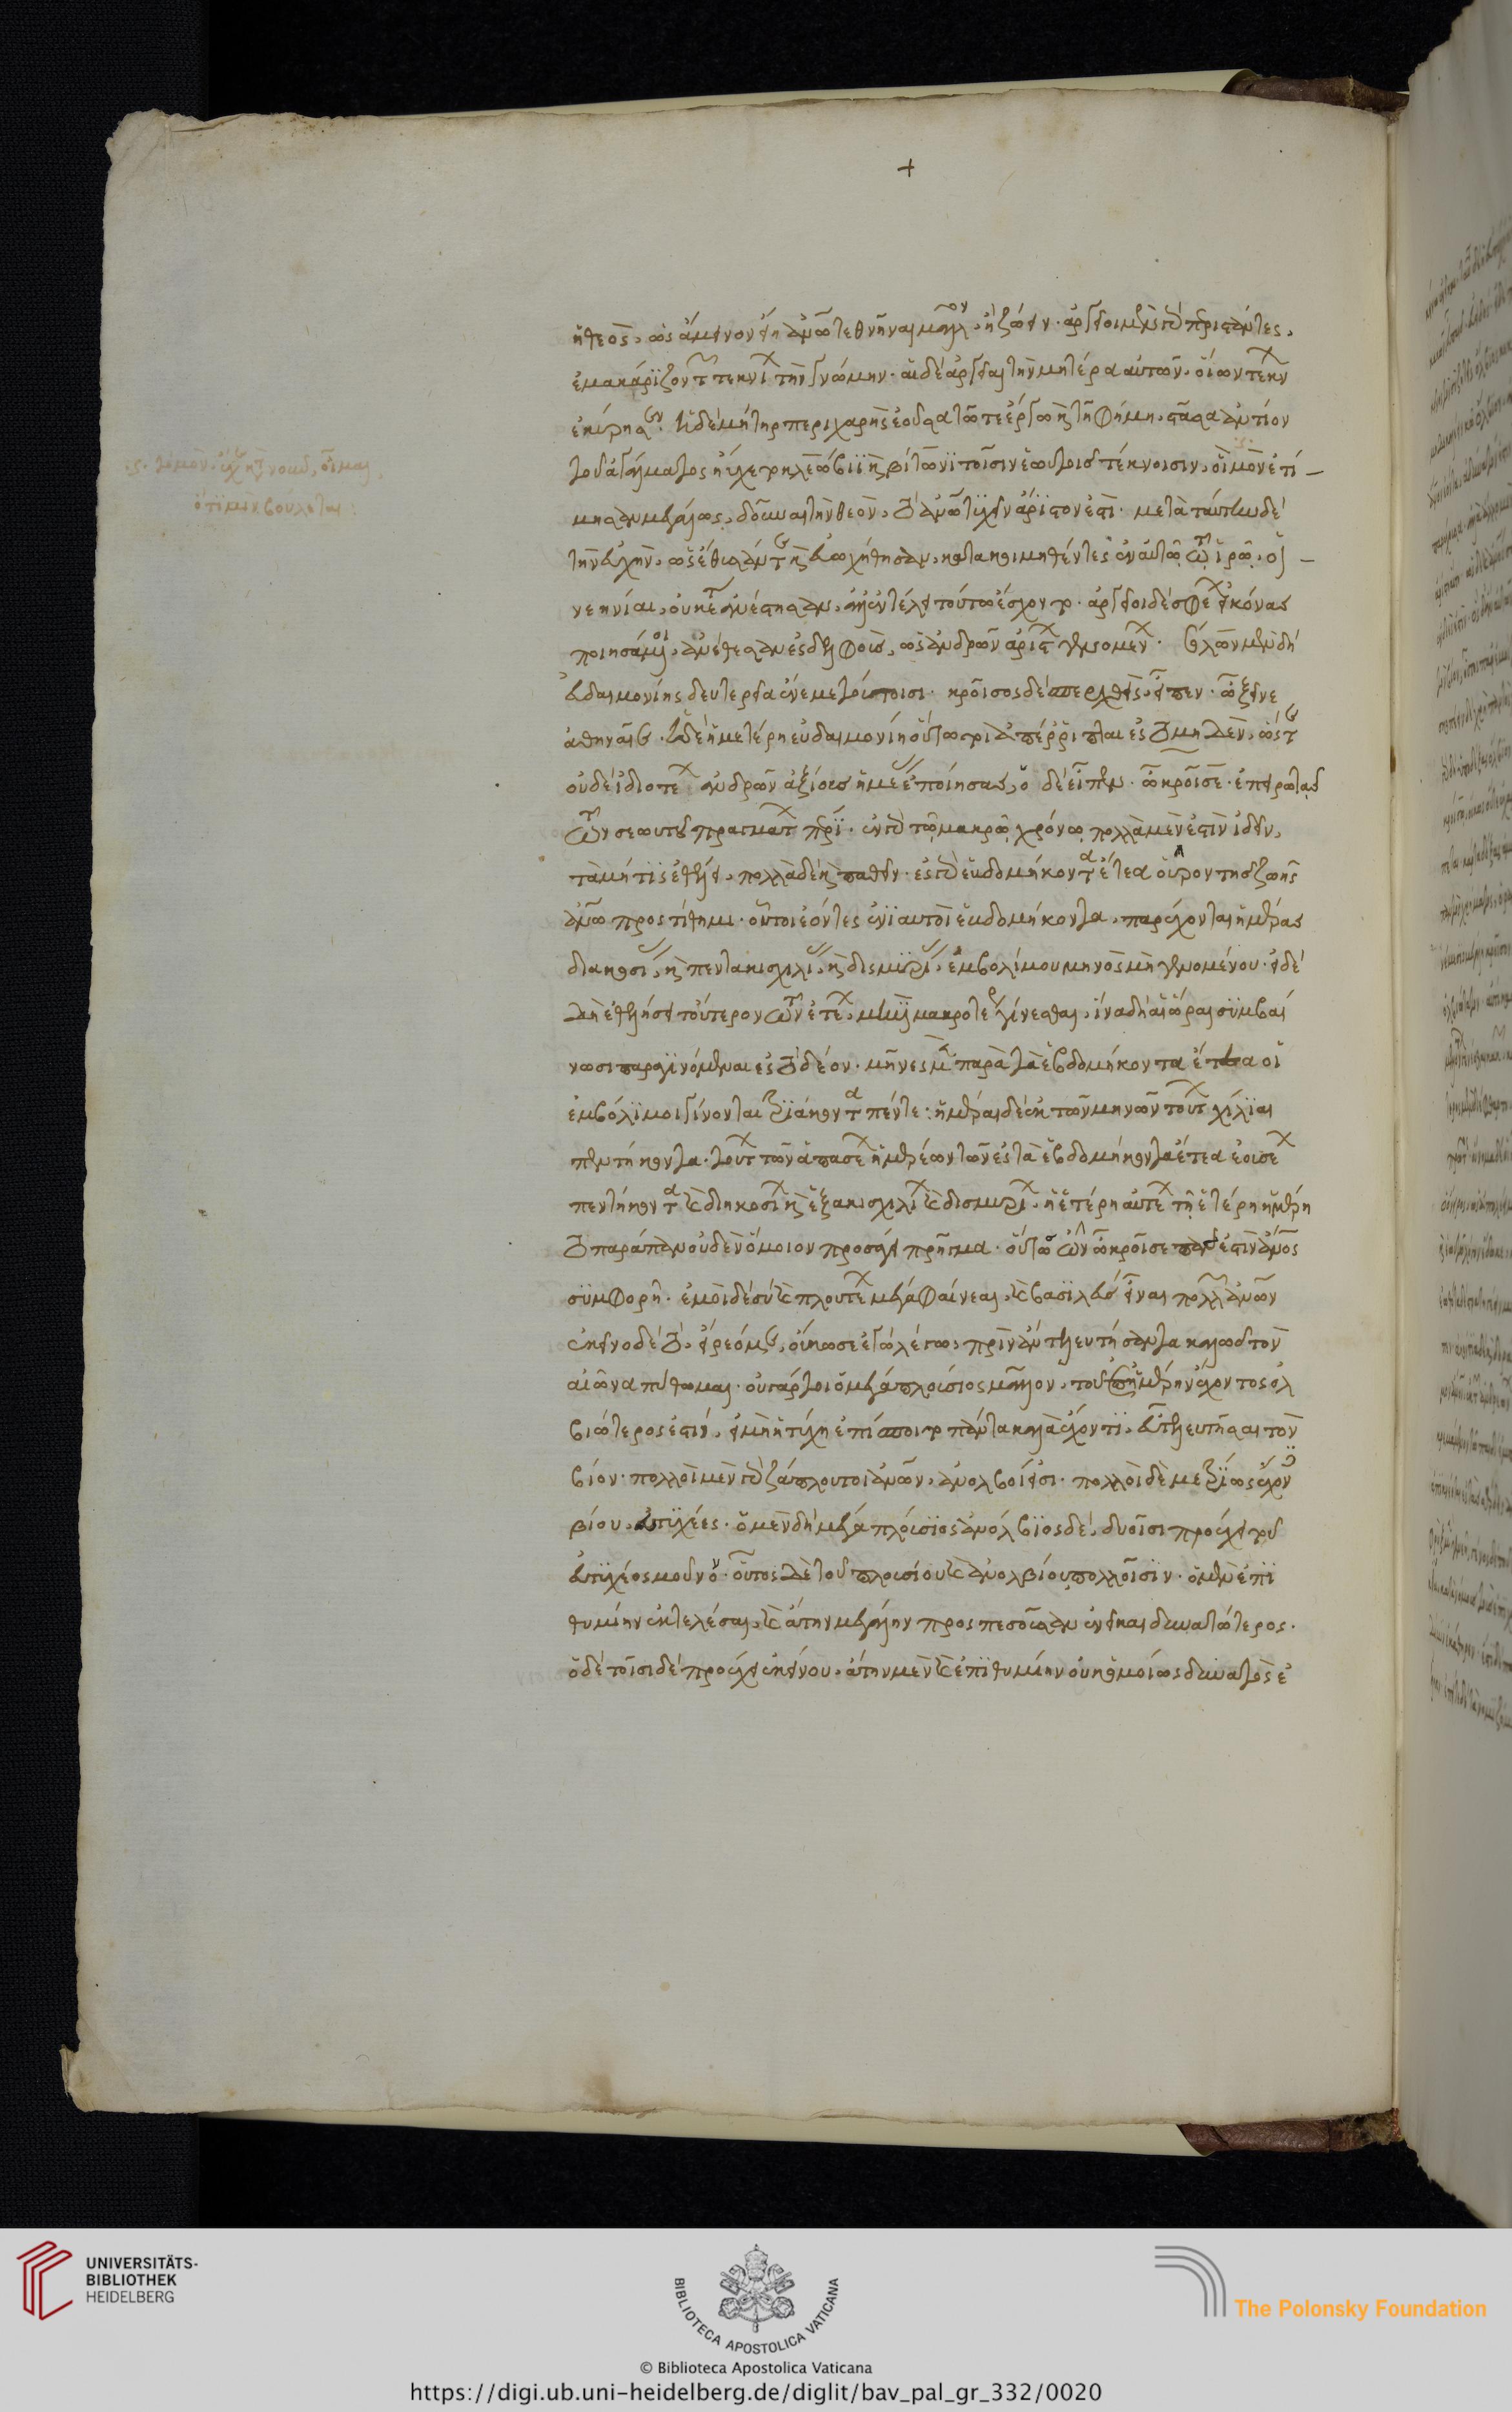 +
ὁ θεὸς, ὡς ἄμεινον εἴη ἀνθρώπω τεθνάναι μᾶλλον ἢ ζώειν. ἀργεῖοι μὲν γὰρ περιστάντες,
ἐμακάριζον τῶν νεηνιέων τὴν γνώμην. αἱ δὲ ἀργεῖαι τὴν μητέρα αὐτῶν, οἵων τέκνων
ἐκύρησε. ἡ δὲ μήτηρ περιχαρὴς ἐοῦσα τῶ τε ἔργω καὶ τῆ φήμη, στᾶσα ἀντίον
τοῦ ἀγάλματος εὔχετο κλεόβι καὶ βίτωνι τοῖσιν ἑωυτοῖς τέκνοισιν, οἵ μιν ἐτί-
μησαν μεγάλως, δοῦναι τὴν θεὸν, τὸ ἀνθρώπω τυχεῖν ἄριστον ἐστί. μετὰ ταύτην δὲ
τὴν εὐχὴν, ὡς ἔθυσάν τε καὶ εὐωχήθησαν, κατακοιμηθέντες ἐν αὐτῶ τῶ ἱρῶ, οἱ -
νεηνίαι, οὐκέτι ἀνέστησαν, ἀλλ' ἐν τέλει τούτω ἔσχοντο. ἀργεῖοι δέ σφεων εἰκόνας
ποιησάμενοι, ἀνέθεσαν ἐς δελφοὺς, ὡς ἀνδρῶν ἀρίστων γενομένων. σόλων μὲν δὴ
εὐδαιμονίης δευτερεῖα ἔνεμε τούτοισι. κροῖσος δὲ σπερχθεὶς, εἶπεν. ὦ ξεῖνε
ἀθηναῖε. ἡ δὲ ἡμετέρη εὐδαιμονίη οὕτω τοι ἀπέρριπται ἐς τὸ μηδὲν, ὥστε
οὐδὲ ἰδιωτέων ἀνδρῶν ἀξίους ἡμέας ἐποίησας, ὁ δὲ εἶπεν. ὦ κροῖσε. ἐπειρωτᾶς
πρηγμάτων πέρι. ἐν γὰρ τῶ μακρῶ χρόνω πολλὰ μὲν ἐστὶν ἰδεῖν,
τὰ μή τις ἐθέλει, πολλὰ δὲ καὶ παθεῖν. ἐς γὰρ ἑβδομήκοντα ἔτεα οὖρον τῆς ζωῆς
ἀνθρώπω προςτίθημι. οὗτοι ἐόντες ἐνιαυτοὶ ἑβδομήκοντα, παρέχονται ἡμέρας
διηκοσίας καὶ πεντακισχιλίας καὶ δισμυρίας, ἐμβολίμου μηνὸς μὴ γινομένου. εἰ δὲ
δὴ ἐθελήσει τοὔτερον τῶν ἐτέων, μηνὶ μακρότερον γίνεσθαι, ἵνα δὴ αἱ ὧραι συμβαί
νωσι παραγινόμεναι ἐς τὸ δέον. μῆνες μὲν παρὰ τὰ ἑβδομήκοντα ἔτεα οἱ
ἐμβόλιμοι γίνονται τριάκοντα πέντε. ἡμέραι δὲ ἐκ τῶν μηνῶν τούτων χίλιαι
πεντήκοντα. τουτέων τῶν ἁπασέων ἡμερέων τῶν ἐς τὰ ἑβδομήκοντα ἔτεα ἐουσέων
πεντήκοντα καὶ διηκοσίων καὶ ἑξακισχιλίων καὶ δισμυρίων, ἡ ἑτέρη αὐτέων τῆ ἑτέρη ἡμέρη
τὸ παράπαν οὐδὲν ὅμοιον προσάγει πρῆγμα. οὕτω ὦν ὦ κροῖσε πᾶν ἐστὶν ἄνθρωπος
συμφορή. ἐμοὶ δὲ σὺ καὶ πλουτέειν μέγα φαίνεαι, καὶ βασιλεὺς εἶναι πολλῶν ἀνθρώπων
ἐκεῖνο δὲ τὸ εἴρεό με, οὔκω σε ἐγὼ λέγω, πρὶν ἂν τελευτήσαντα καλῶς τὸν
αἰῶνα πύθωμαι. οὐ γάρ τοι ὁ μέγα πλούσιος μᾶλλον, τοῦ ἐπ' ἡμέρην ἔχοντος ὀλ
βιώτερος ἐστί, εἰ μὴ ἡ τύχη ἐπίσποιτο πάντα καλὰ ἔχοντι, εὖ τελευτῆσαι τὸν
βίον. πολλοὶ μὲν γὰρ ζάπλουτοι ἀνθρώπων, ἀνόλβιοι εἰσι. πολλοὶ δὲ μετρίως ἔχοντες
βίου, εὐτυχέες. ὁ μὲν δὴ μέγα πλούσιος ἀνόλβιος δὲ, δυοῖσι προέχει τοῦ
εὐτυχέος μοῦνον. οὗτος δὲ τοῦ πλουσίου καὶ ἀνολβίου πολλοῖσιν. ὁ μὲν ἐπι
θυμίην ἐκτελέσαι, καὶ ἄτην μεγάλην προςπεσοῦσαν ἐνεῖκαι δυνατώτερος.
ὁ δὲ τοῖσιδε προέχει ἐκείνου, ἄτην μὲν καὶ ἐπιθυμίην οὐκ ὁμοίως δυνατὸς ἐ
UNIVERSITÄTS-
BIBLIOTHEK
HEIDELBERG
BIBLIOTECA APOSTOLICA VATICANA
The Polonsky Foundation
© Biblioteca Apostolica Vaticana
https://digi.ub.uni-heidelberg.de/diglit/bav_pal_gr_332/0020